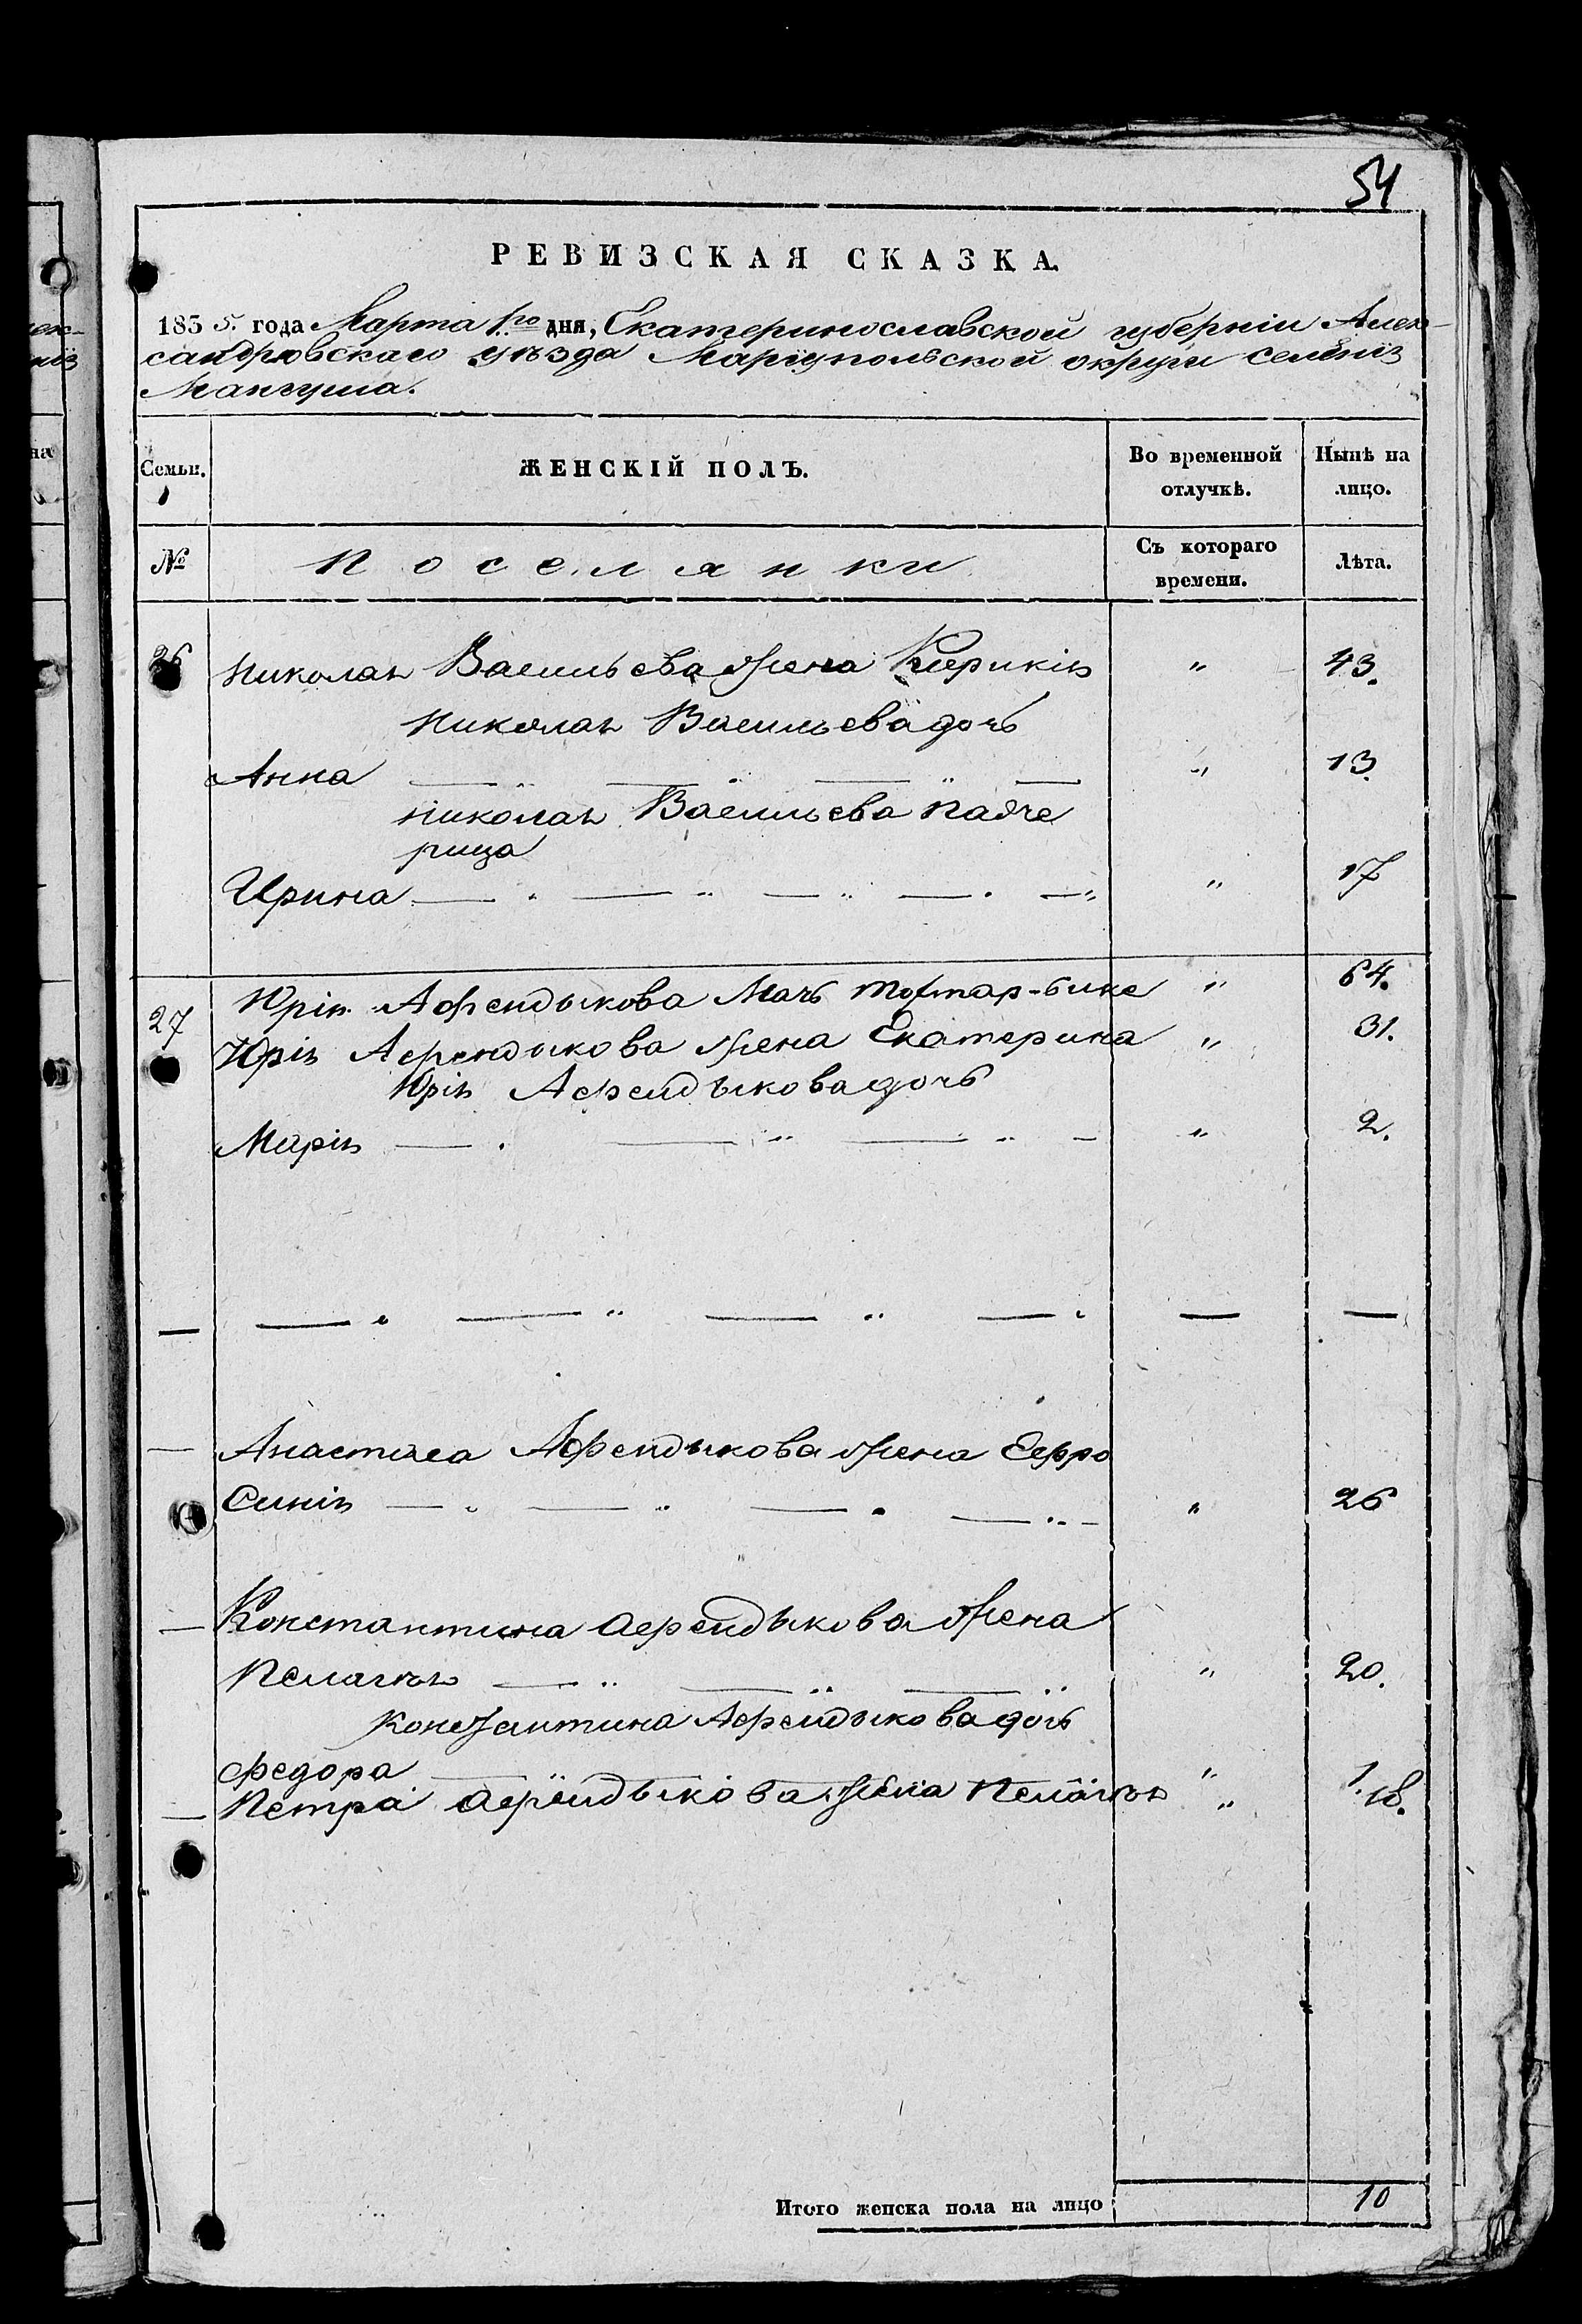 54
РЕВИЗСКАЯ СКАЗКА.
1855. года Марта 1го дня, Екатеринославской губерніи Алек-
сандровскаго уѣзда Маріупольской округи селенія
Мангуша.
Семьи. ЖЕНСКІЙ ПОЛЪ. Во временной отлучкѣ. Нынѣ на лицо.
№ Поселянки Съ котораго времени. Лѣта.
26 Николая Васильева жена Кирикія " 43.
Николая Васильева дочь
Анна " 13.
Николая Васильева падче
рица
Ирина " 17
27 Юрія Афендыкова мать Тохтар-бике " 64.
Юрія Афендыкова жена Екатерина " 31.
Юрія Афендыкова дочь
Марія " 2.
Анастаса Афендыкова жена Ефро
синія " 26
Константина Афендыкова жена
Пелагѣя " 20.
Константина Афендыкова дочь
Федора " 1.
Петра Афендыкова жена Пелагѣя " 18.
Итого женска пола на лицо 10